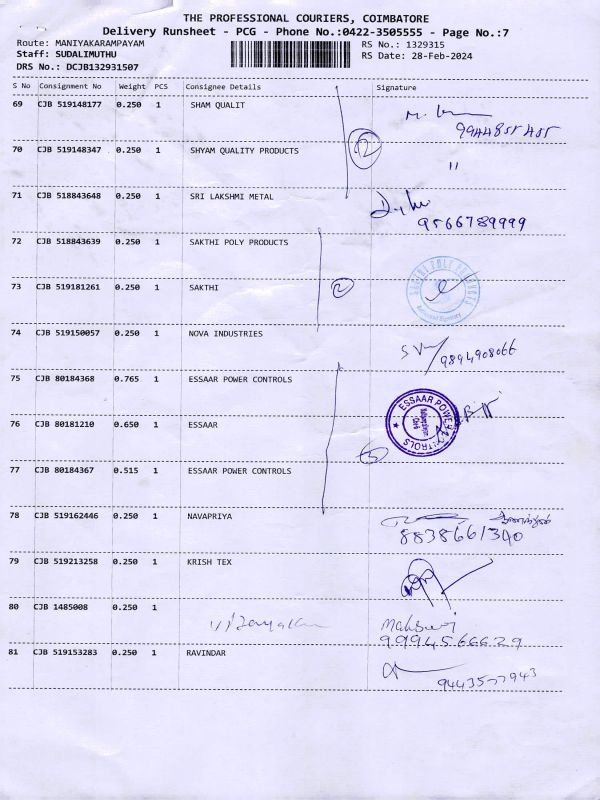 THE PROFESSIONAL COURIERS, COIMBATORE
Delivery Runsheet - PCG - Phone No.:0422-3505555 - Page No.:7
Route: MANIYAKARAMPAYAM
RS No.: 1329315
Staff: SUDALIMUTHU
RS Date: 28-Feb-2024
DRS No.: DCJB132931507
S No Consignment No Weight PCS Consignee Details Signature
69 CJB 519148177 0.250 1 SHAM QUALIT
9944855455
70 CJB 519148347 0.250 1 SHYAM QUALITY PRODUCTS "
2
71 CJB 518843648 0.250 1 SRI LAKSHMI METAL
9566789999
72 CJB 518843639 0.250 1 SAKTHI POLY PRODUCTS
73 CJB 519181261 0.250 1 SAKTHI 2
74 CJB 519150057 0.250 1 NOVA INDUSTRIES
9894908066
75 CJB 80184368 0.765 1 ESSAAR POWER CONTROLS
76 CJB 80181210 0.650 1 ESSAAR
ESSAAR POWER CONTROLS
3
77 CJB 80184367 0.515 1 ESSAAR POWER CONTROLS
78 CJB 519162446 0.250 1 NAVAPRIYA
8838661340
79 CJB 519213258 0.250 1 KRISH TEX
80 CJB 1485008 0.250 1
9994566629
81 CJB 519153283 0.250 1 RAVINDAR
9443577943